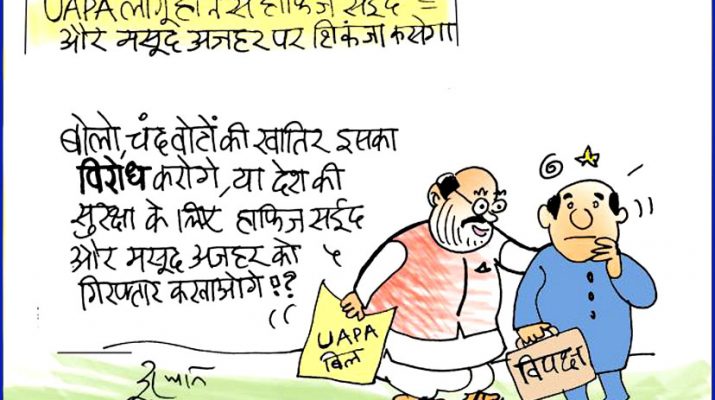 UAPA लागू होने से हाफिज सईद
और मसूद अजहर पर शिकंजा कसेगा
बोलो, चंद वोटों की खातिर इसका
विरोध करोगे, या देश की
सुरक्षा के लिए हाफिज सईद
और मसूद अजहर को
गिरफ्तार करवाओगे ??
UAPA
बिल
विपक्ष